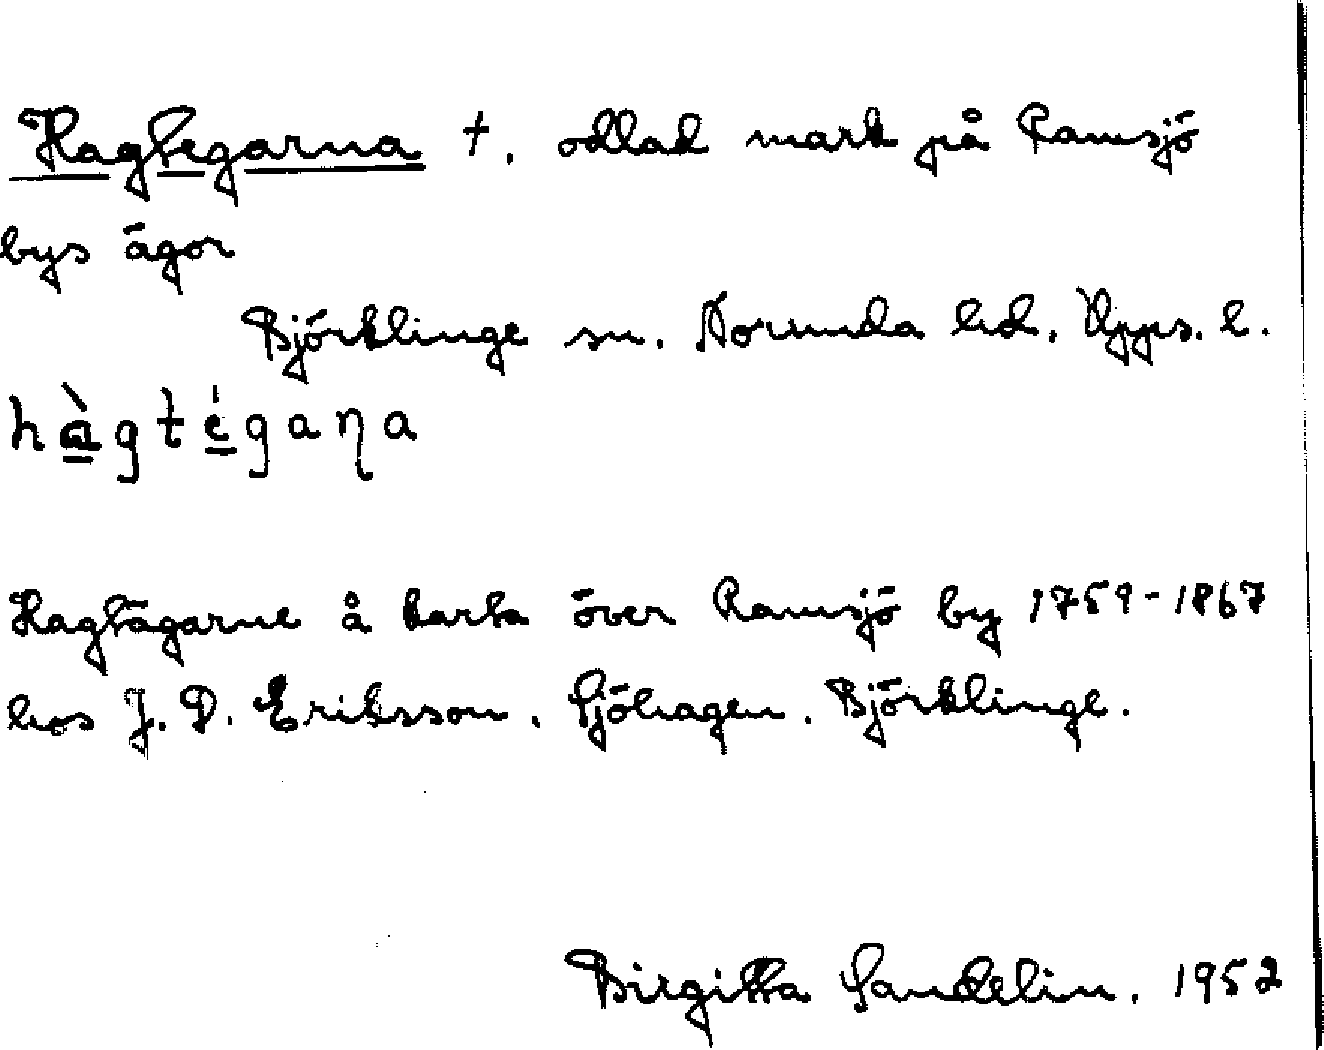 Hagtegarna †. odlad mark på Ramsjö
bys ägor
Björklinge sn. Norunda hd. Upps. l.
hàgtégaɳa
Hagtägarne å karta över Ramsjö by 1759-1867
hos J. D. Eriksson. Sjöhagen. Björklinge.
Birgitta Sandelin. 1952